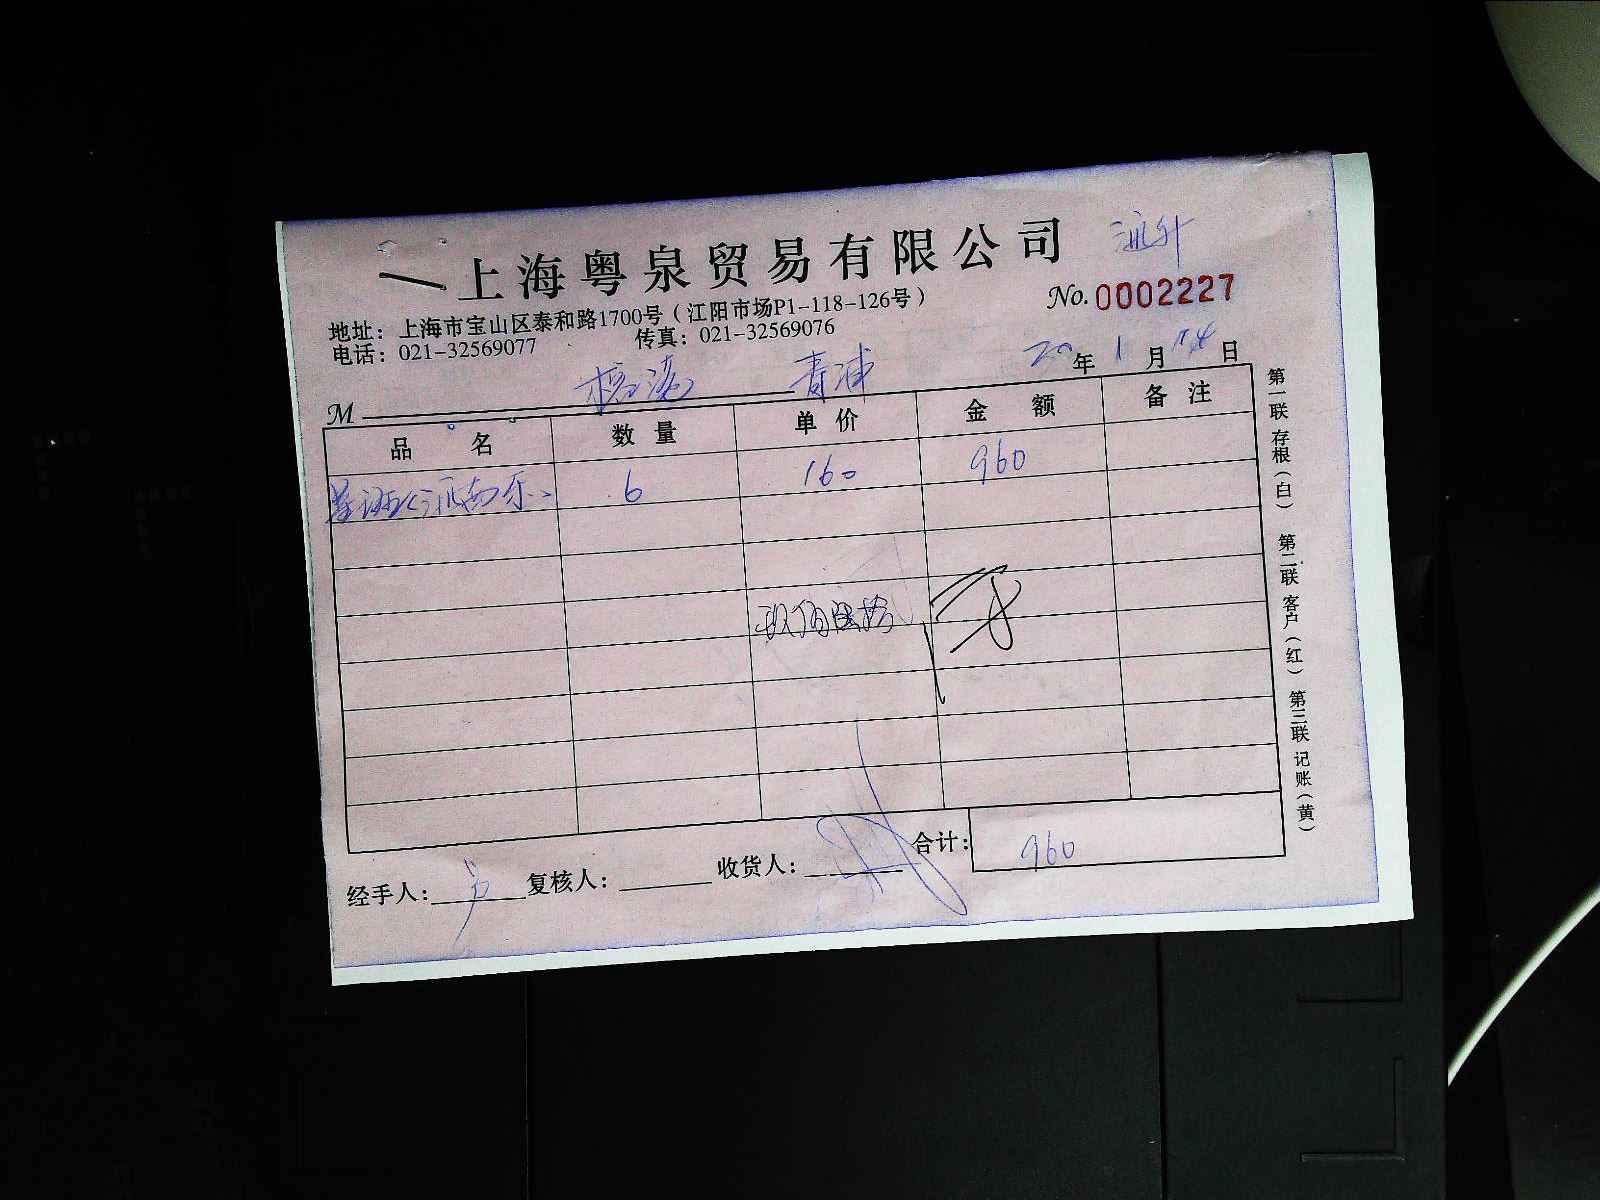 上海粤泉贸易有限公司
No. 0002227
地址：上海市宝山区泰和路1700号（江阳市场P1-118-126号）
电话：021-32569077 传真：021-32569076
20年1月14日
M 青浦
品名 数量 单价 金额 备注
6 160 960
玖佰陆拾
合计：960
经手人： 复核人： 收货人：
第一联 存根（白） 第二联 客户（红） 第三联 记账（黄）